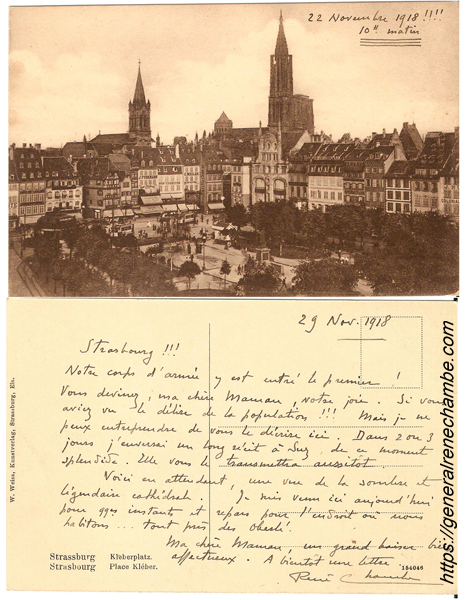 22 Novembre 1918 !!!!
10h matin
29 Nov. 1918
Strasbourg !!!
Notre corps d'armée y est entré le premier !
Vous devinez, ma chère Maman, notre joie. Si vous
aviez vu le délire de la population !!! Mais je ne
peux entreprendre de vous le décrire ici. Dans 2 ou 3
jours j'enverrai un long récit à Suz, de ce moment
splendide. Elle vous le transmettra aussitôt.
Voici en attendant, une vue de la sombre et
légendaire cathédrale. Je suis venu ici aujourd'hui
pour qques instants et repars pour l'endroit où nous
habitons... tout près des
Ma chère Maman, un grand baiser bien
affectueux. A bientôt une lettre.
René Chambe
W. Weiss, Kunstverlag, Strassburg, Els.
Strassburg Kleberplatz.
Strasbourg Place Kléber.
154046
https://generalrenechambe.com